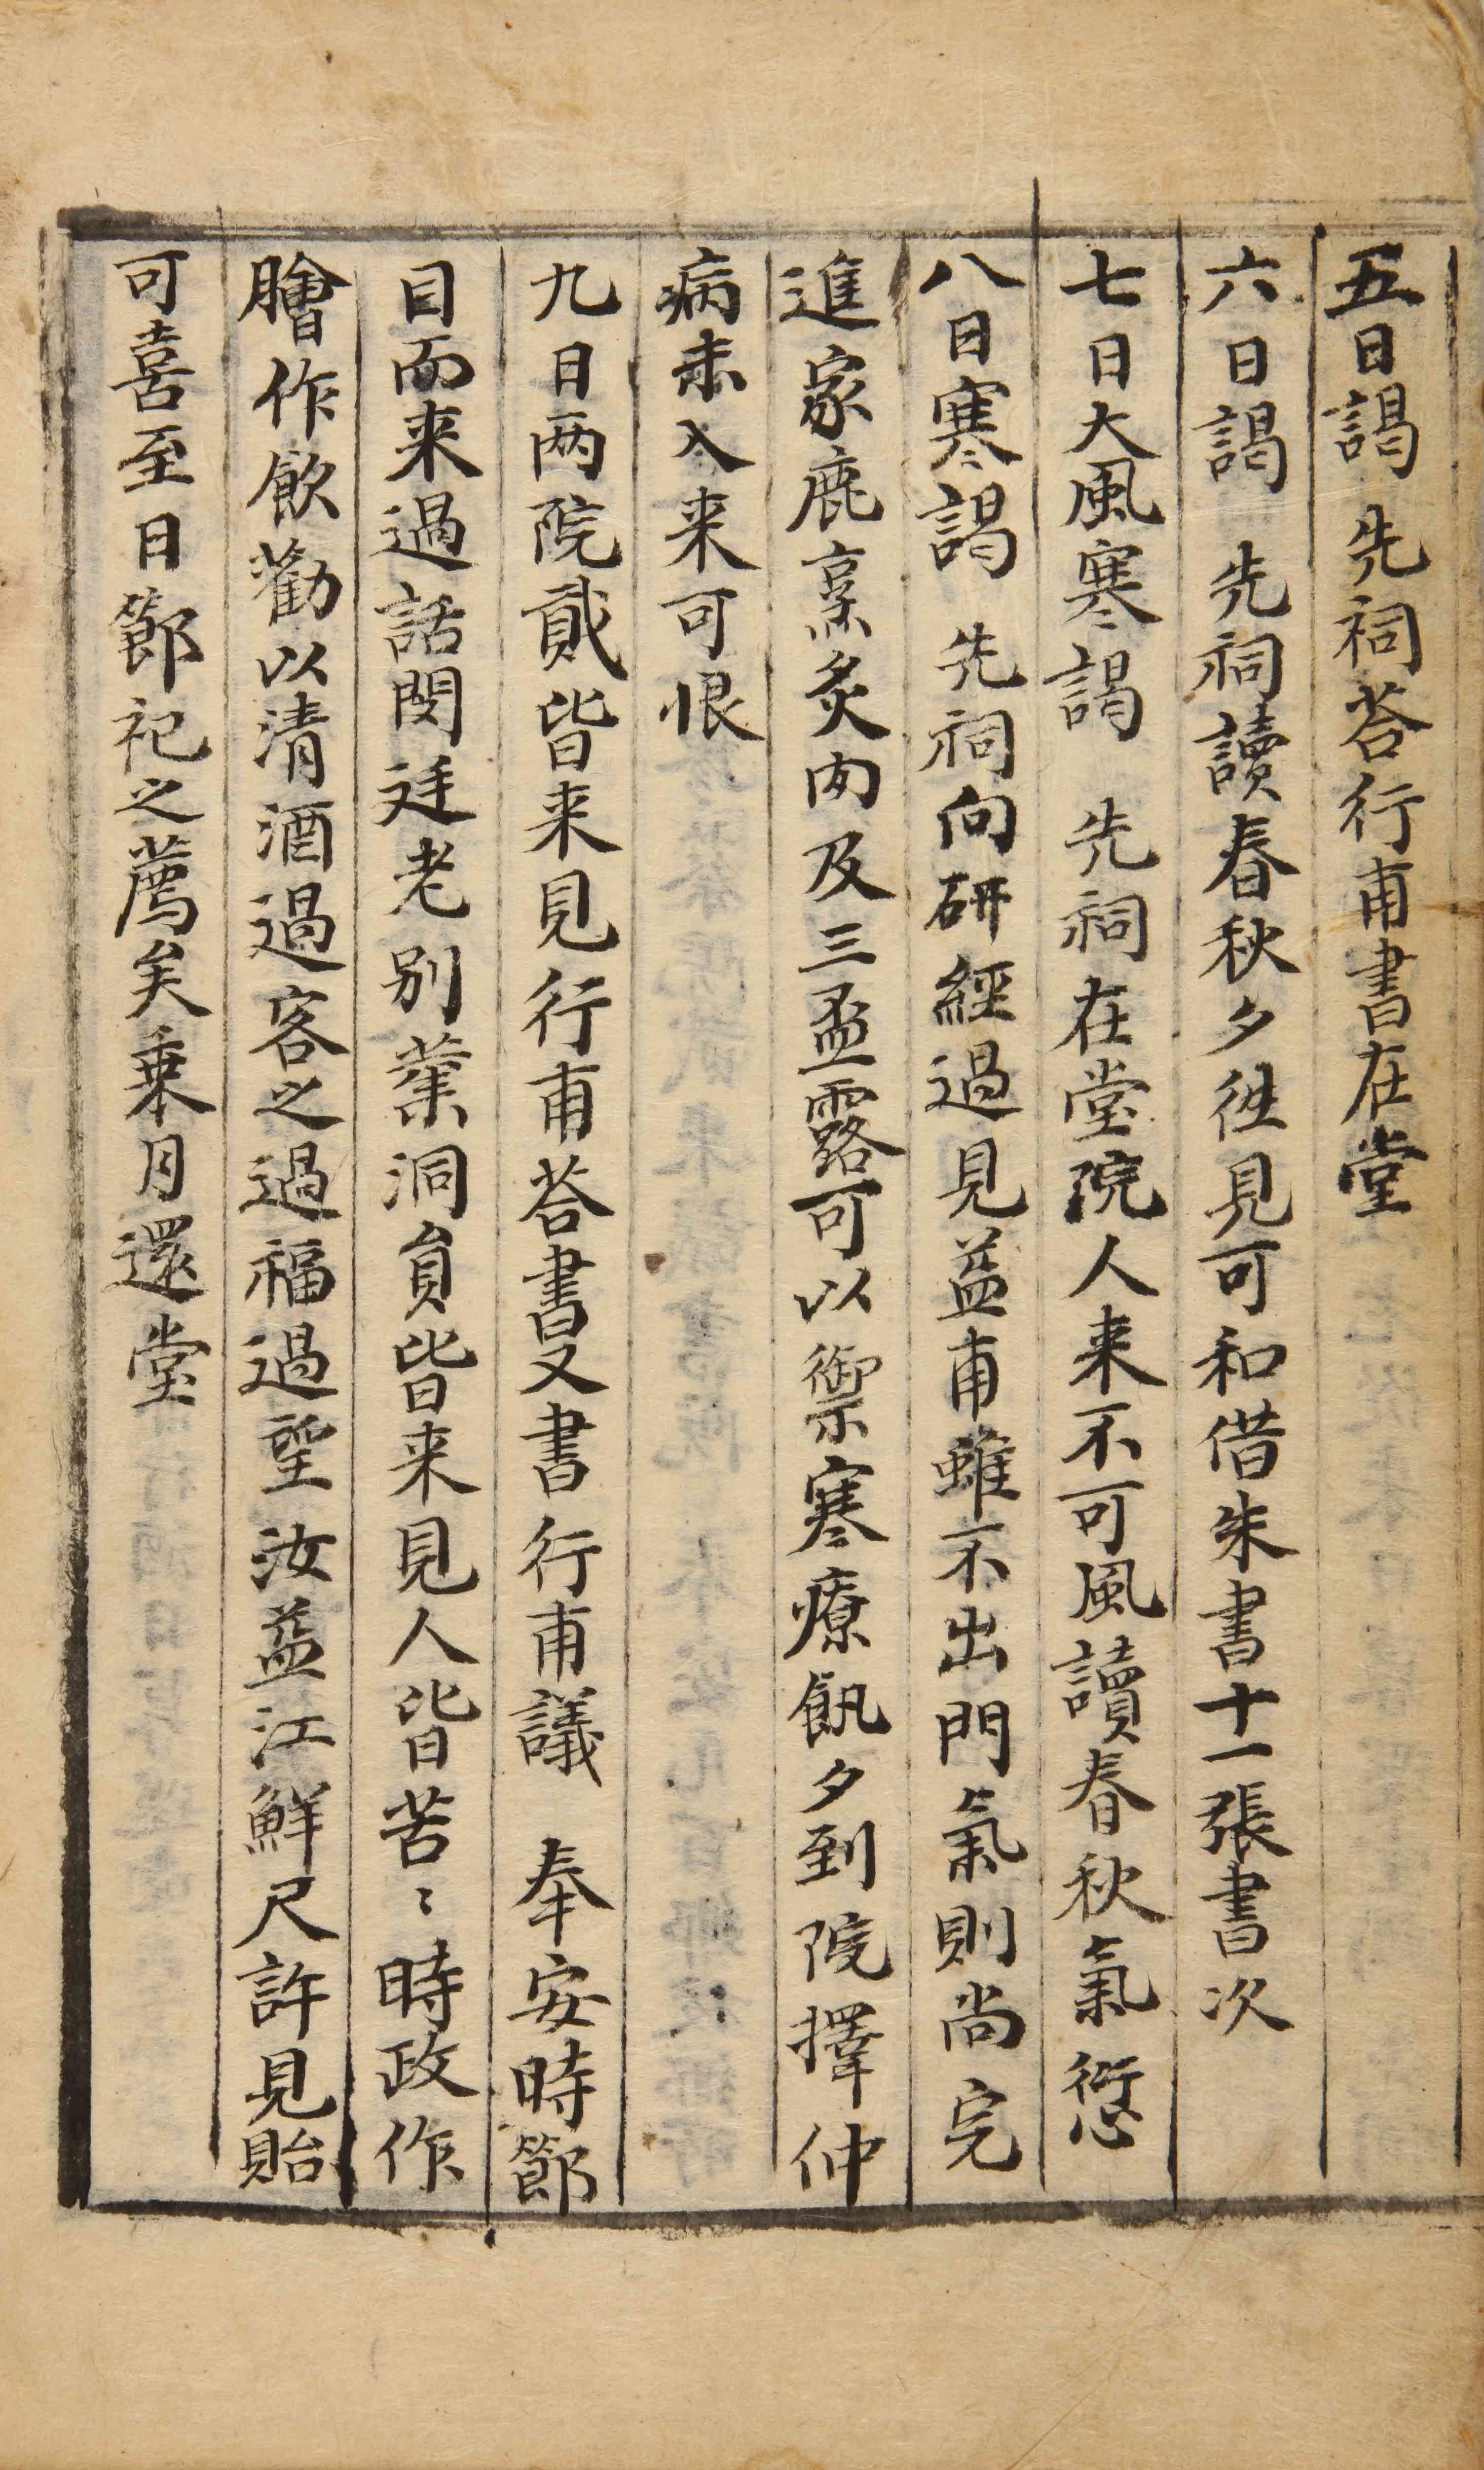 五日謁 先祠荅行甫書在堂
六日謁 先祠讀春秋夕徃見可和借朱書十一張書次
七日大風寒謁 先祠在堂院人来不可風讀春秋氣愆
八日寒謁 先祠向硏經過見益甫雖不出門氣則尚完
進家鹿烹炙肉及三盃露可以禦寒療飢夕到院擇仲
病未入来可恨
九日两院貳皆来見行甫荅書又書行甫議 奉安時節
目而来過話閔廷老別業洞員皆来見人皆苦〻時政作
膾作飲勸以清酒過客之過福過望汝益江鮮尺許見貽
可喜至日節祀之薦矣乗月還堂